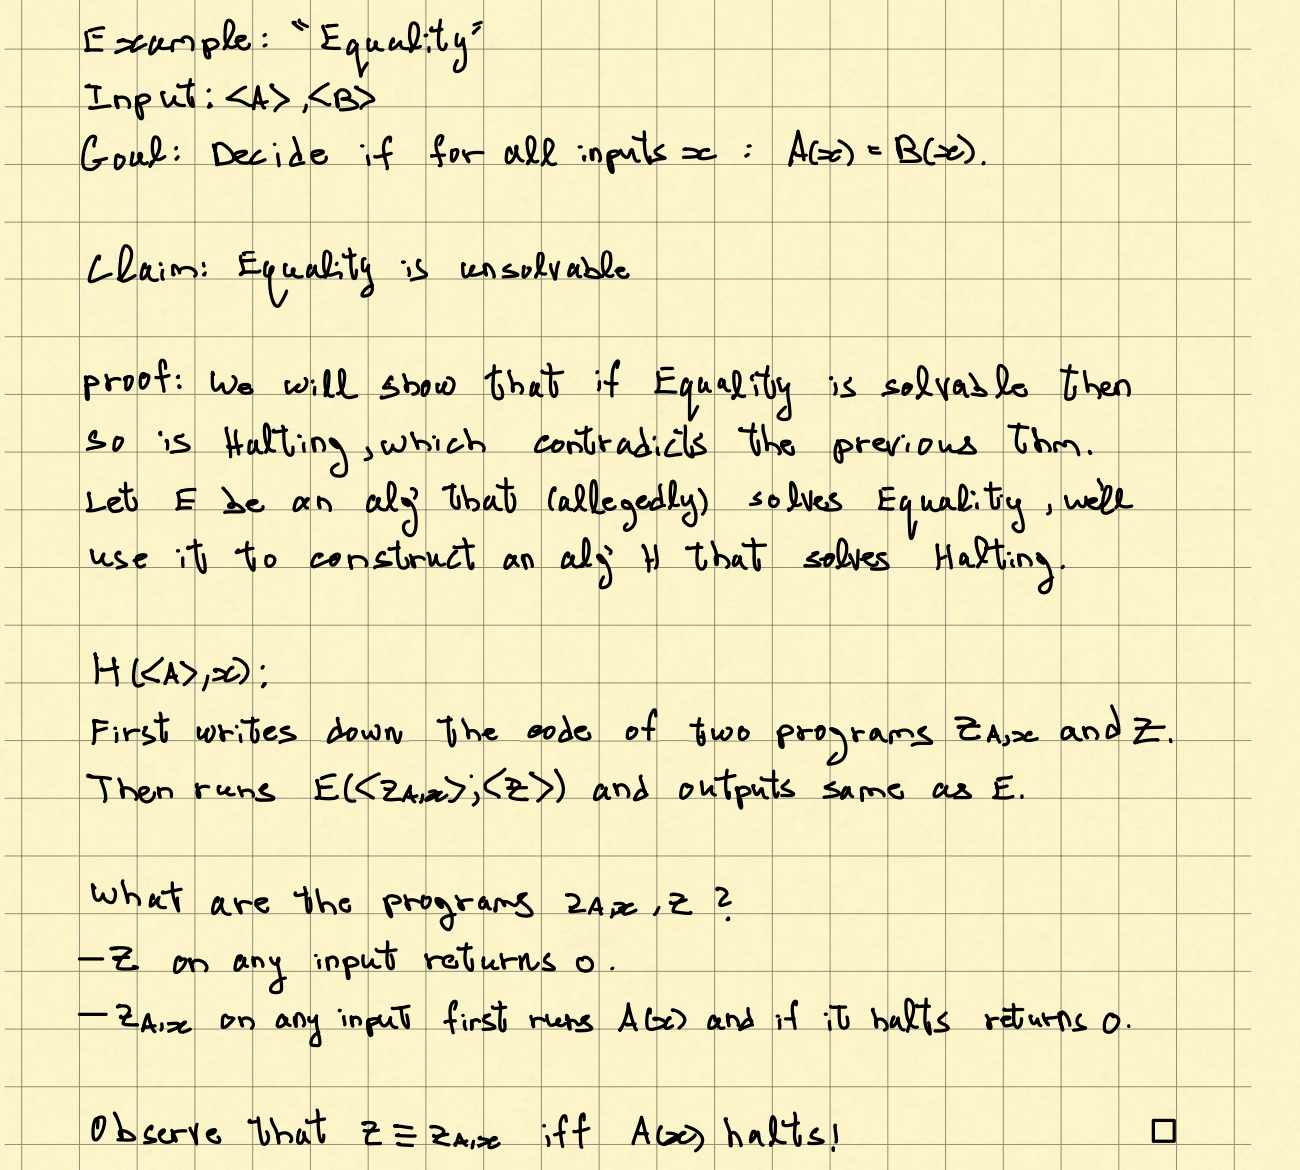 Example: "Equality"
Input: <A>, <B>
Goal: Decide if for all inputs x : A(x) = B(x).
Claim: Equality is unsolvable
proof: We will show that if Equality is solvable then
so is Halting, which contradicts the previous Thm.
Let E be an alg' that (allegedly) solves Equality, we'll
use it to construct an alg' H that solves Halting.
H(<A>,x):
First writes down the code of two programs Z_{A,x} and Z.
Then runs E(<Z_{A,x}>;<Z>) and outputs same as E.
What are the programs Z_{A,x}, Z ?
- Z on any input returns 0.
- Z_{A,x} on any input first runs A(x) and if it halts returns 0.
Observe that Z ≡ Z_{A,x} iff A(x) halts! □